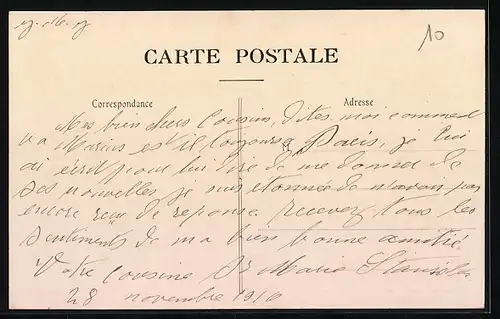 10
CARTE POSTALE
Correspondance
Adresse
Mes bien chers Cousins, dites moi comment
va Marius est il toujours a Paris, je lui
ai écrit pour lui dire de me donner de
ses nouvelles je suis étonnée de n'avoir pas
encore reçu de reponse. recevez tous les
sentiments de ma bien bonne amitié.
Votre Cousine Sr Marie Stanislas
28 novembre 1910